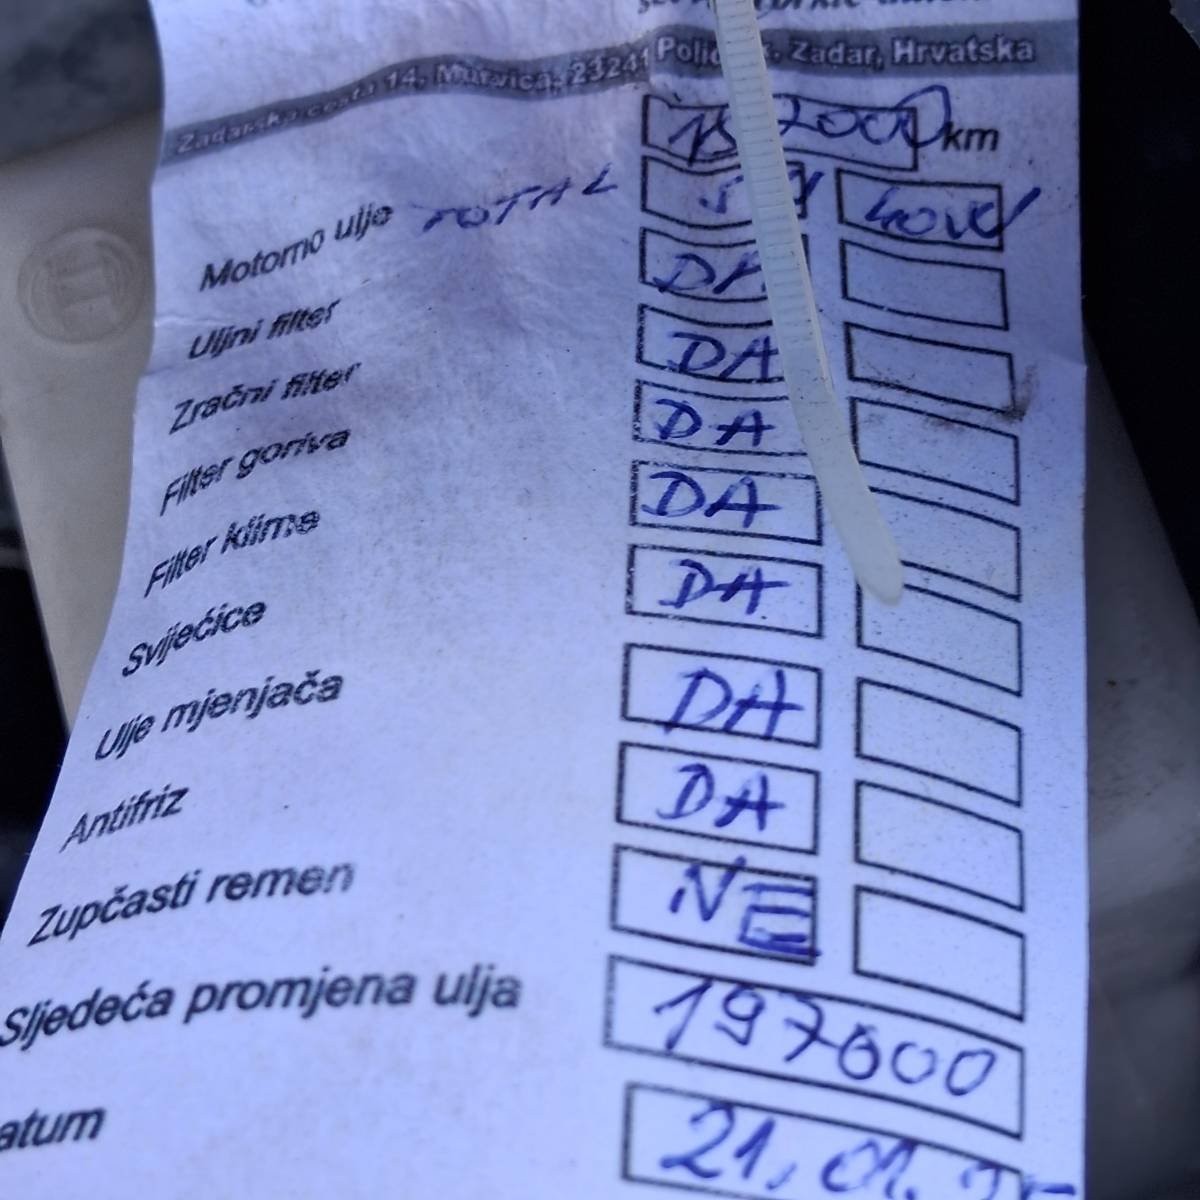 Zadarska cesta 14, Murvica, 23241 Poličnik, Zadar, Hrvatska
km
Motorno ulje TOTAL 5W 40W
Uljni filter DA
Zračni filter DA
Filter goriva DA
Filter klime DA
Svijećice DA
Ulje mjenjača DA
Antifriz DA
Zupčasti remen NE
Sljedeća promjena ulja 197000
atum 21.01.